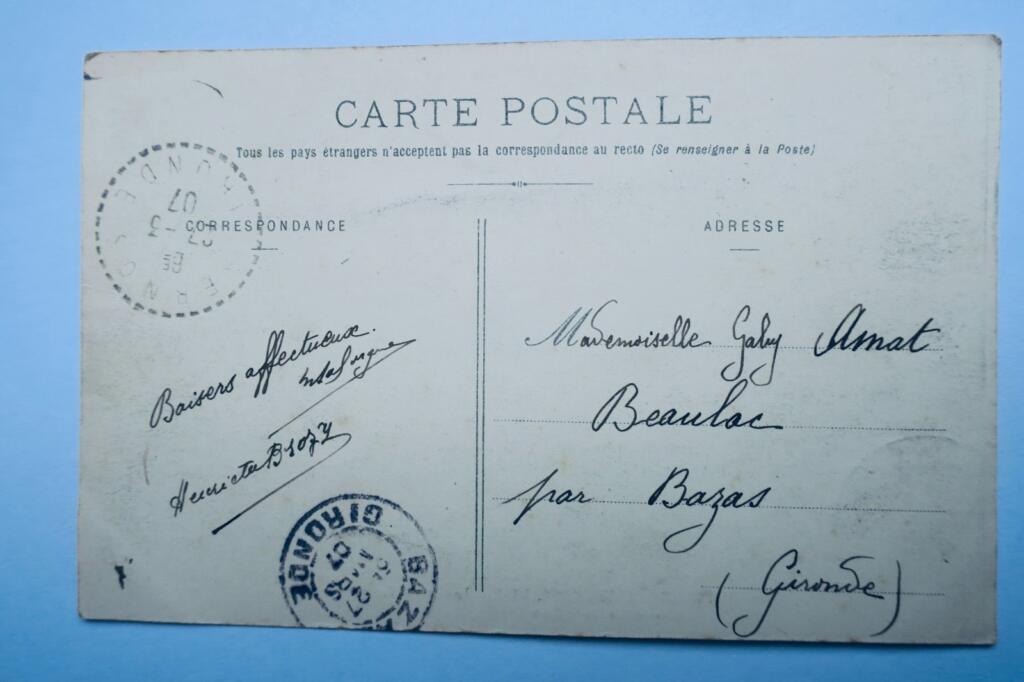 CARTE POSTALE
Tous les pays étrangers n'acceptent pas la correspondance au recto (Se renseigner à la Poste)
CORRESPONDANCE
Baisers affectueux.
ADRESSE
Mademoiselle Gaby Amat
Beaulac
par Bazas
(Gironde)
GIRONDE
07
GIRONDE
07